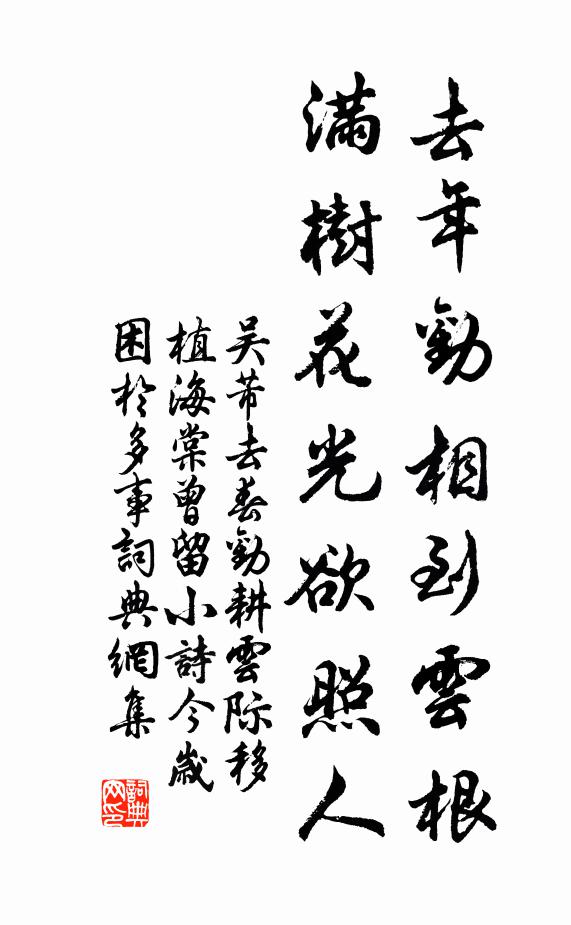 去年勸相到雲根
滿樹花光欲照人
吴芾去春勸耕雲際移
植海棠曾留小詩今歲
困於多事詞典網集
詞典网印